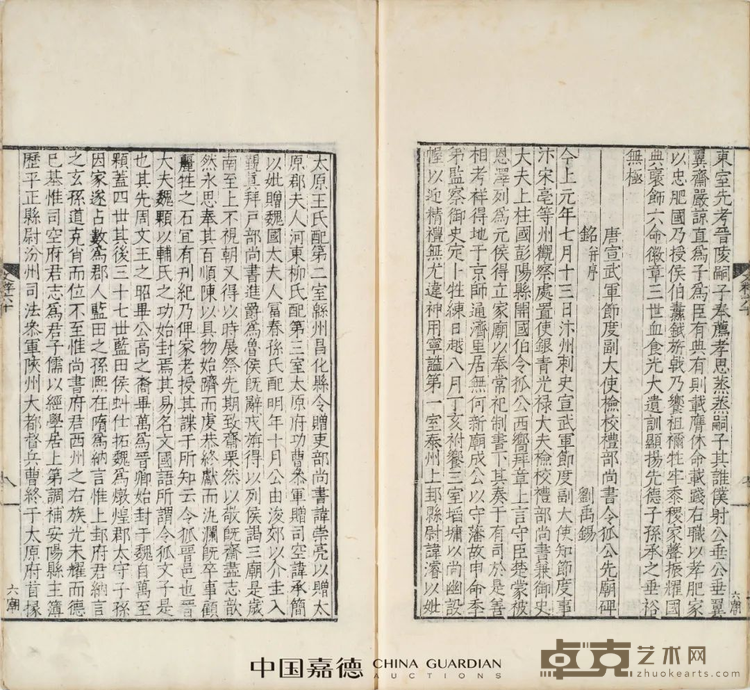 東室先考晉陵嗣子奉薦孝思蒸蒸嗣子其誰僕射公垂公垂翼
翼齋嚴諒直爲子爲臣有典有則載膺休命載踐右職以孝肥家
以忠肥國乃授侯伯
乃饗祖禰牲牢黍稷家聲振耀國
典褒飾六命徽章三世血食光大遺訓顯揚先德子孫承之垂裕
無極
唐宣武軍節度副大使檢校禮部尚書令狐公先廟碑
銘并序
劉禹錫
今上元年七月十三日汴州刺史宣武軍節度副大使知節度事
汴宋亳等州觀察處置使銀青光禄大夫檢校禮部尚書兼御史
大夫上柱國彭陽縣開國伯令狐公西嚮拜章上言守臣楚家被
恩澤列爲元侯得立家廟以奉常祀制書下其奏于有司於是善
相考祥得地于京師通濟里居無何新廟成公以守藩故申命季
弟監察御史定卜牲練日越八月丁亥祔饗三室塯墉以尚幽設
幄以迎精禮無尤違神用寧謐第一室秦州上邽縣尉諱濬以妣
六廟
太原王氏配第二室縣州昌化縣令贈吏部尚書諱崇亮以贈太
原郡夫人河東柳氏配第三室太原府功曹叅軍贈司空諱承簡
以妣贈魏國太夫人富春孫氏配明年十月公由浚郊以介圭入
覲真拜戸部尚書進爵爲魯侯既辭戒
得以列侯謁三廟是歲
南至上不視朝又得以時展祭先期致齋栗然以敬既齋盡志歆
然永思奉其百順陳以具物始躋而虔恭終獻而
瀾既卒事顧
麗牲之石宜有刊紀乃俾家老授其諜于所知云令狐晉邑也晉
大夫魏顆以輔氏之功始封焉其易名文國語所謂令狐文子是
也其先周文王之昭畢公高之裔畢萬爲晉卿始封于魏自萬至
顆蓋四世其後三十七世藍田侯虯仕拓魏爲燉煌郡太守子孫
因家遂占數爲郡人藍田之孫熙在隋爲納言惟上邽府君納言
之玄孫道克肖而位不至惟尚書府君西州之右族光未耀而德
已基惟司空府君志爲君子儒以經學居上第調補安陽縣主簿
歷平正縣尉汾州司法叅軍陝州大都督兵曹終于太原府首掾
六廟
中国嘉德 CHINA GUARDIAN
AUCTIONS
卓克艺术网
zhuokearts.com